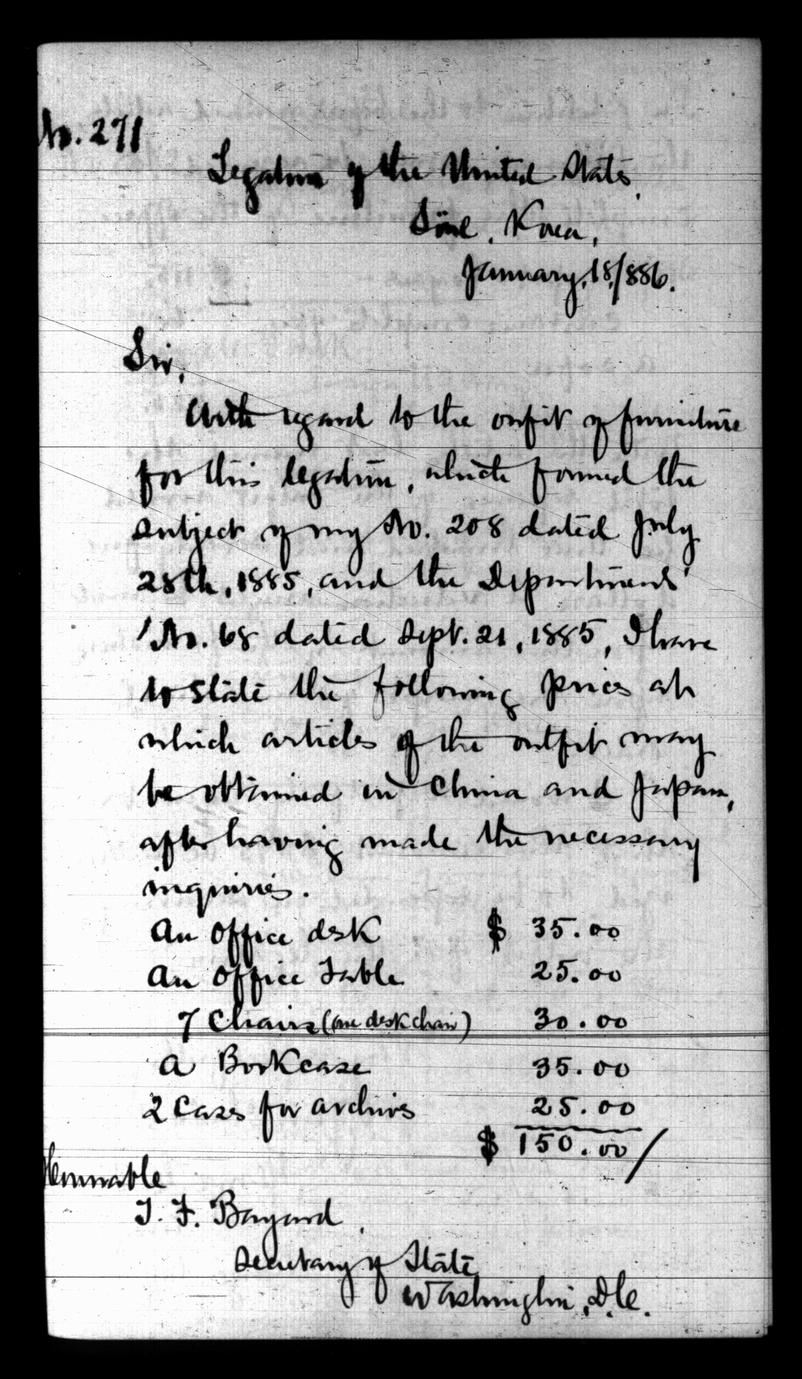 No. 271
Legation of the United States,
Söul, Korea,
January, 18/886.
Sir,
With regard to the outfit of furniture
for this legation, which formed the
subject of my No. 208 dated July
28th, 1885, and the Department's
No. 68 dated Sept. 21, 1885, I have
to state the following prices at
which articles of the outfit may
be obtained in China and Japan,
after having made the necessary
inquiries.
An Office desk $ 35.00
An Office Table 25.00
7 Chairs (one desk chair) 30.00
A Bookcase 35.00
2 Cases for archives 25.00
$ 150.00/
Honorable
T. F. Bayard,
Secretary of State
Washington, D.C.